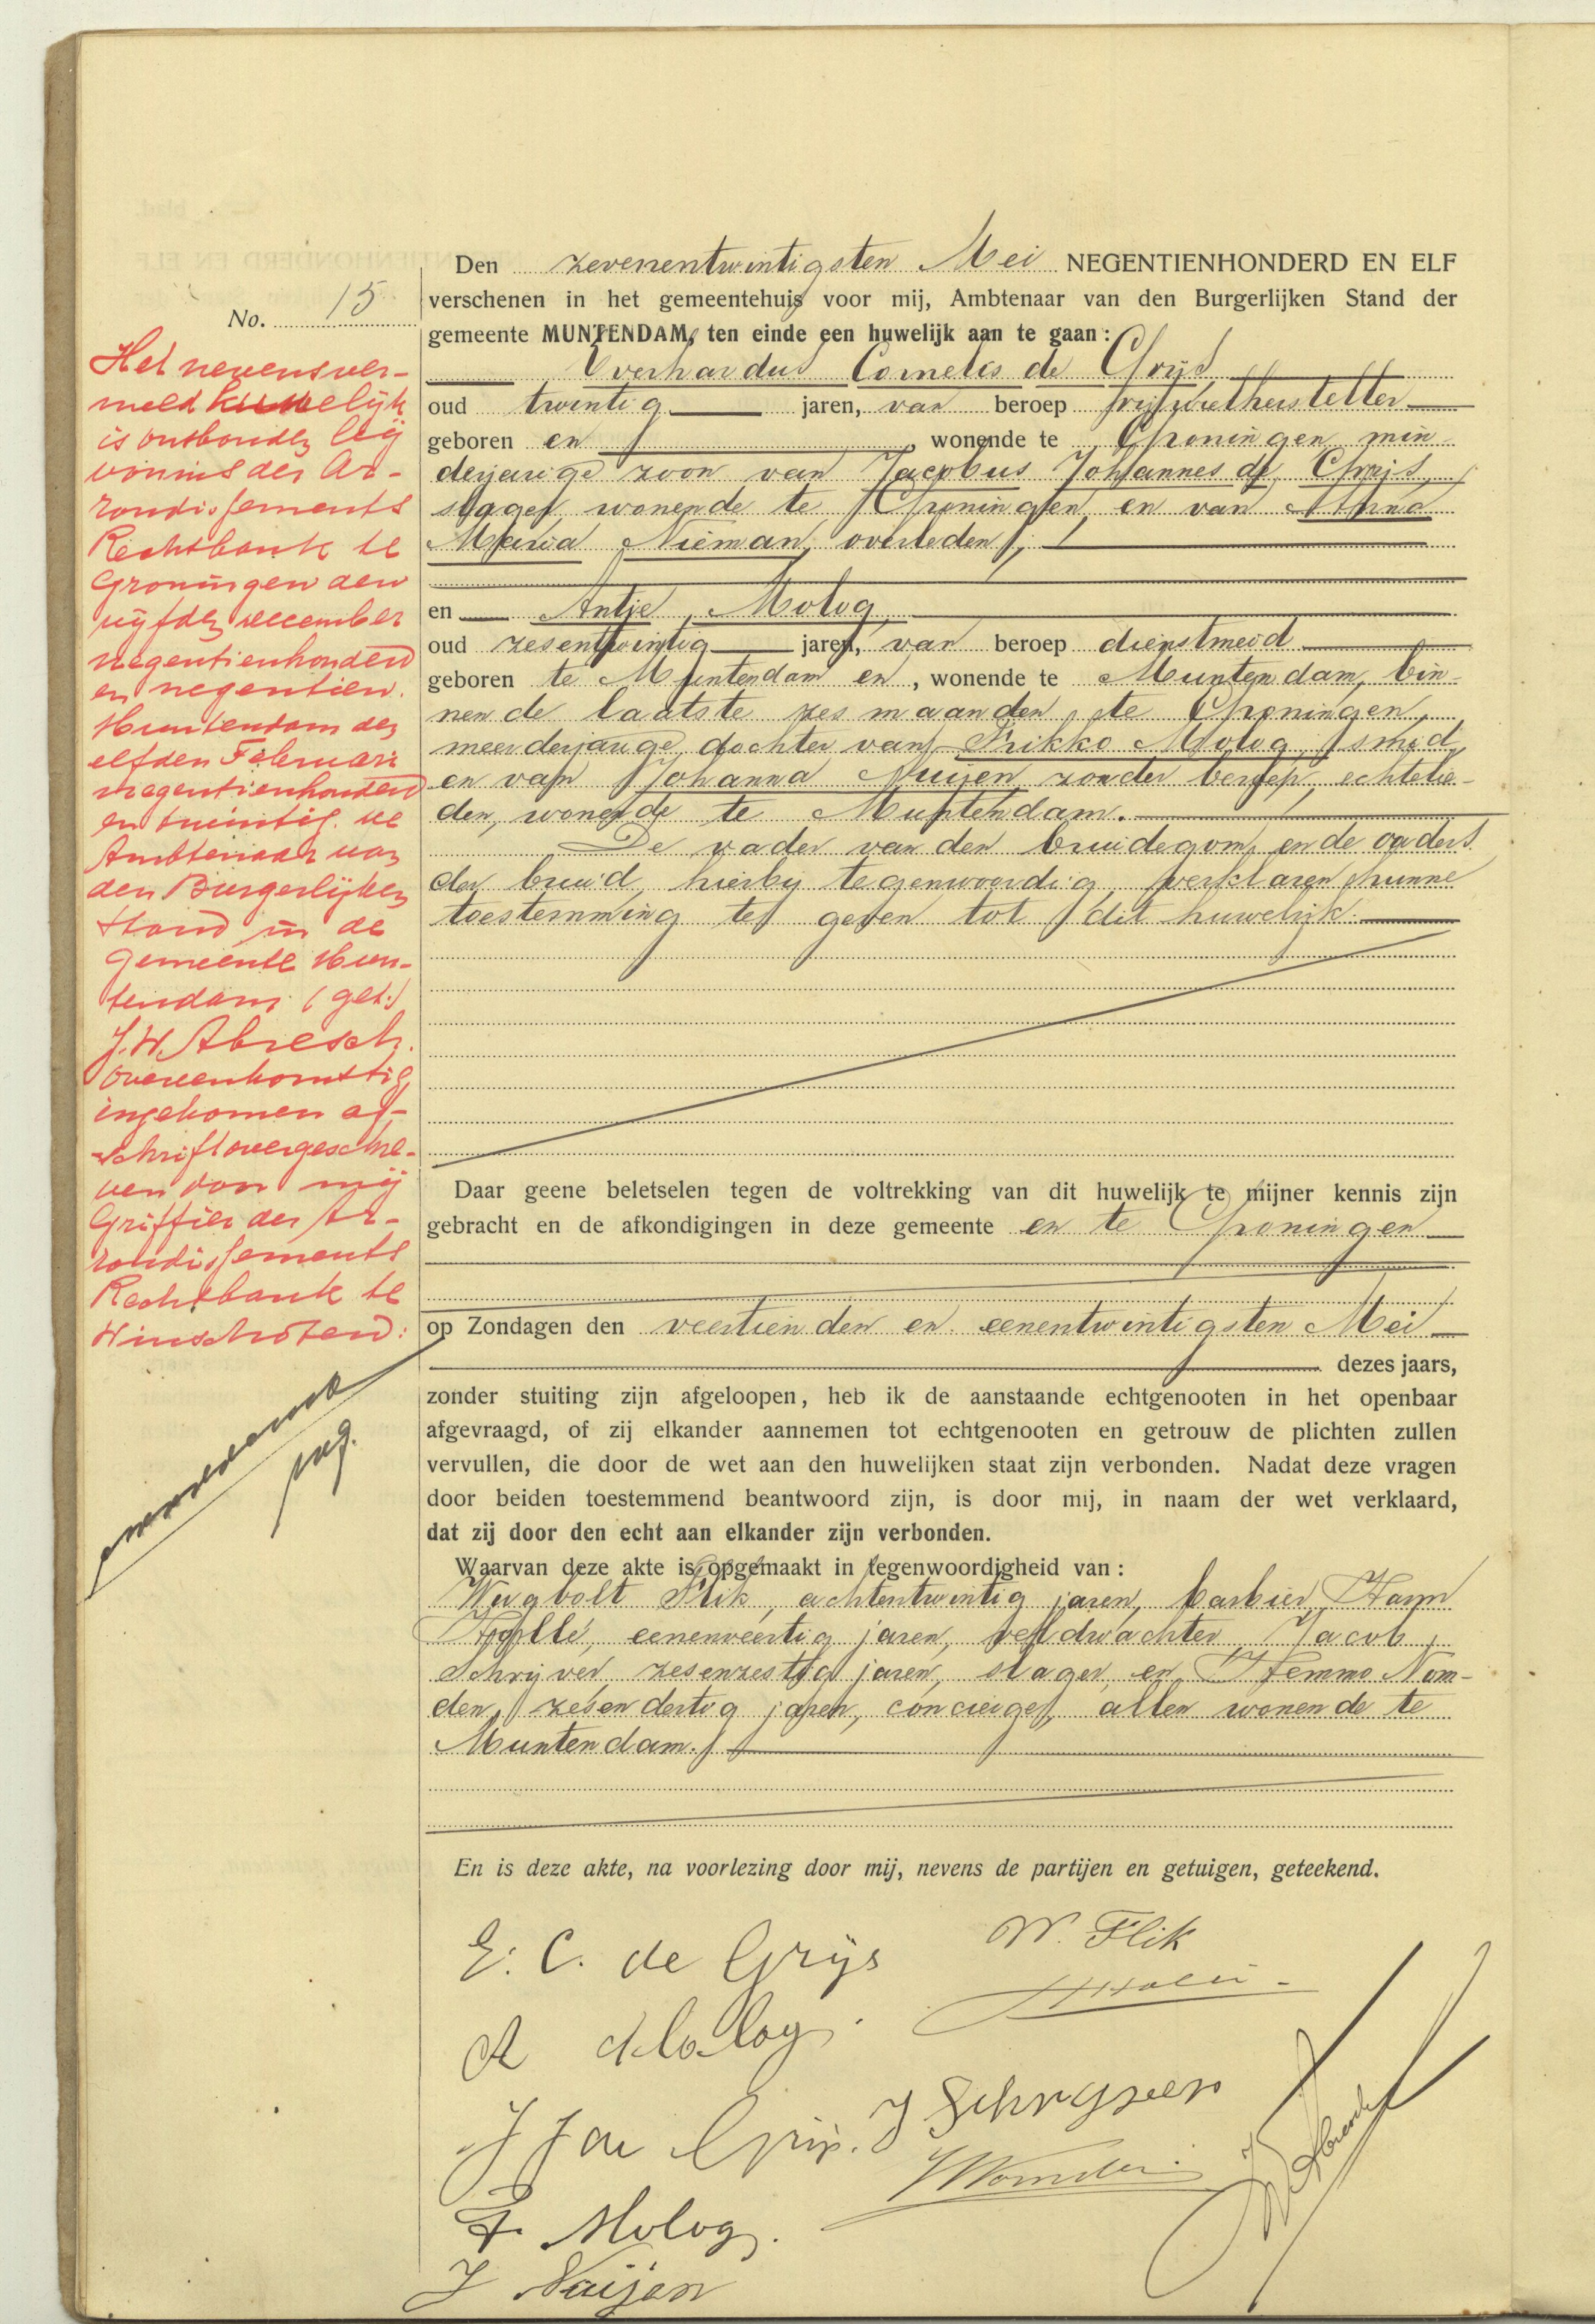 No. 15
Het nevensver-
meld huwelijk
is ontbonden bij
vonnis der Ar-
rondissements
Rechtbank te
Groningen den
vijfden december
negentienhonderd
en negentien.
Muntendam den
elfden Februari
negentienhonderd
en twintig. De
Ambtenaar van
den Burgerlijken
Stand in de
Gemeente Mun-
tendam (get:)
J.W. Abresch.
Overeenkomstig
ingekomen af-
schrift overgeschre-
ven door mij
Griffier der Ar-
rondissements
Rechtbank te
Winschoten:
Den zevenentwintigsten Mei NEGENTIENHONDERD EN ELF
verschenen in het gemeentehuis voor mij, Ambtenaar van den Burgerlijken Stand der
gemeente MUNTENDAM, ten einde een huwelijk aan te gaan:
Everhardus Cornelis de Grijs
oud twintig jaren, van beroep rijwielhersteller
geboren en, wonende te Groningen, min-
derjarige zoon van Jacobus Johannes de Grijs,
slager, wonende te Groningen, en van Anna
Maria Nieman, overleden;
en Antje Molog,
oud zesentwintig jaren, van beroep dienstmeid
geboren te Muntendam en, wonende te Muntendam, bin-
nen de laatste zes maanden te Groningen,
meerderjarige dochter van Frikko Molog, smid,
en van Johanna Nuijen, zonder beroep, echtelie-
den, wonende te Muntendam.
De vader van den bruidegom en de ouders
der bruid, hierby tegenwoordig, verklaren hunne
toestemming te geven tot dit huwelijk.
Daar geene beletselen tegen de voltrekking van dit huwelijk te mijner kennis zijn
gebracht en de afkondigingen in deze gemeente en te Groningen
op Zondagen den veertienden en eenentwintigsten Mei
dezes jaars,
zonder stuiting zijn afgeloopen, heb ik de aanstaande echtgenooten in het openbaar
afgevraagd, of zij elkander aannemen tot echtgenooten en getrouw de plichten zullen
vervullen, die door de wet aan den huwelijken staat zijn verbonden. Nadat deze vragen
door beiden toestemmend beantwoord zijn, is door mij, in naam der wet verklaard,
dat zij door den echt aan elkander zijn verbonden.
Waarvan deze akte is opgemaakt in tegenwoordigheid van:
Wigbolt Flik, achtentwintig jaren, barbier, Harm
Hollé, eenenveertig jaren, veldwachter, Jacob
Schrijver, zesenzestig jaren, slager, en Hemmo Nom-
den, zesendertig jaren, concierge, allen wonende te
Muntendam.
En is deze akte, na voorlezing door mij, nevens de partijen en getuigen, geteekend.
E. C. de Grijs
W. Flik
A Molog.
J J de Grijs.
J Schryver
F. Molog.
J Nuijen